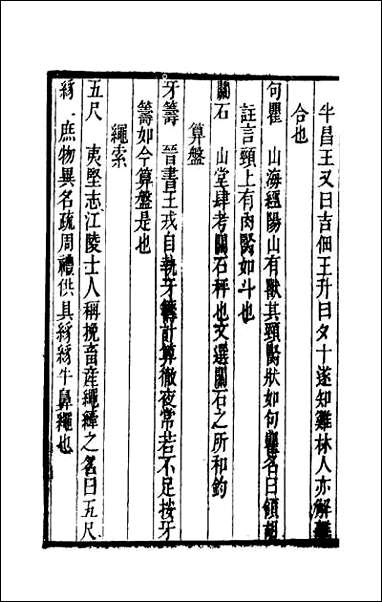 半昌王又曰吉佃王升曰夕十遂知雞林人亦解
合也
句瞿 山海經陽山有獸其頸䏂狀如句瞿名曰領胡
註言頸上有肉䏂如斗也
關石 山堂肆考關石秤也文選關石之所和鈞
算盤
牙籌 晉書王戎自執牙籌計算徹夜常若不足按牙
籌如今算盤是也
繩索
五尺 夷堅志江陵士人稱挽畜産繩繂之名曰五尺
絼 庶物異名疏周禮供其絼絼牛鼻繩也